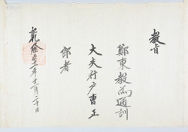 敎旨
鄭東敎爲通訓
大夫行戶曹正
郎者
乾隆年月二十日